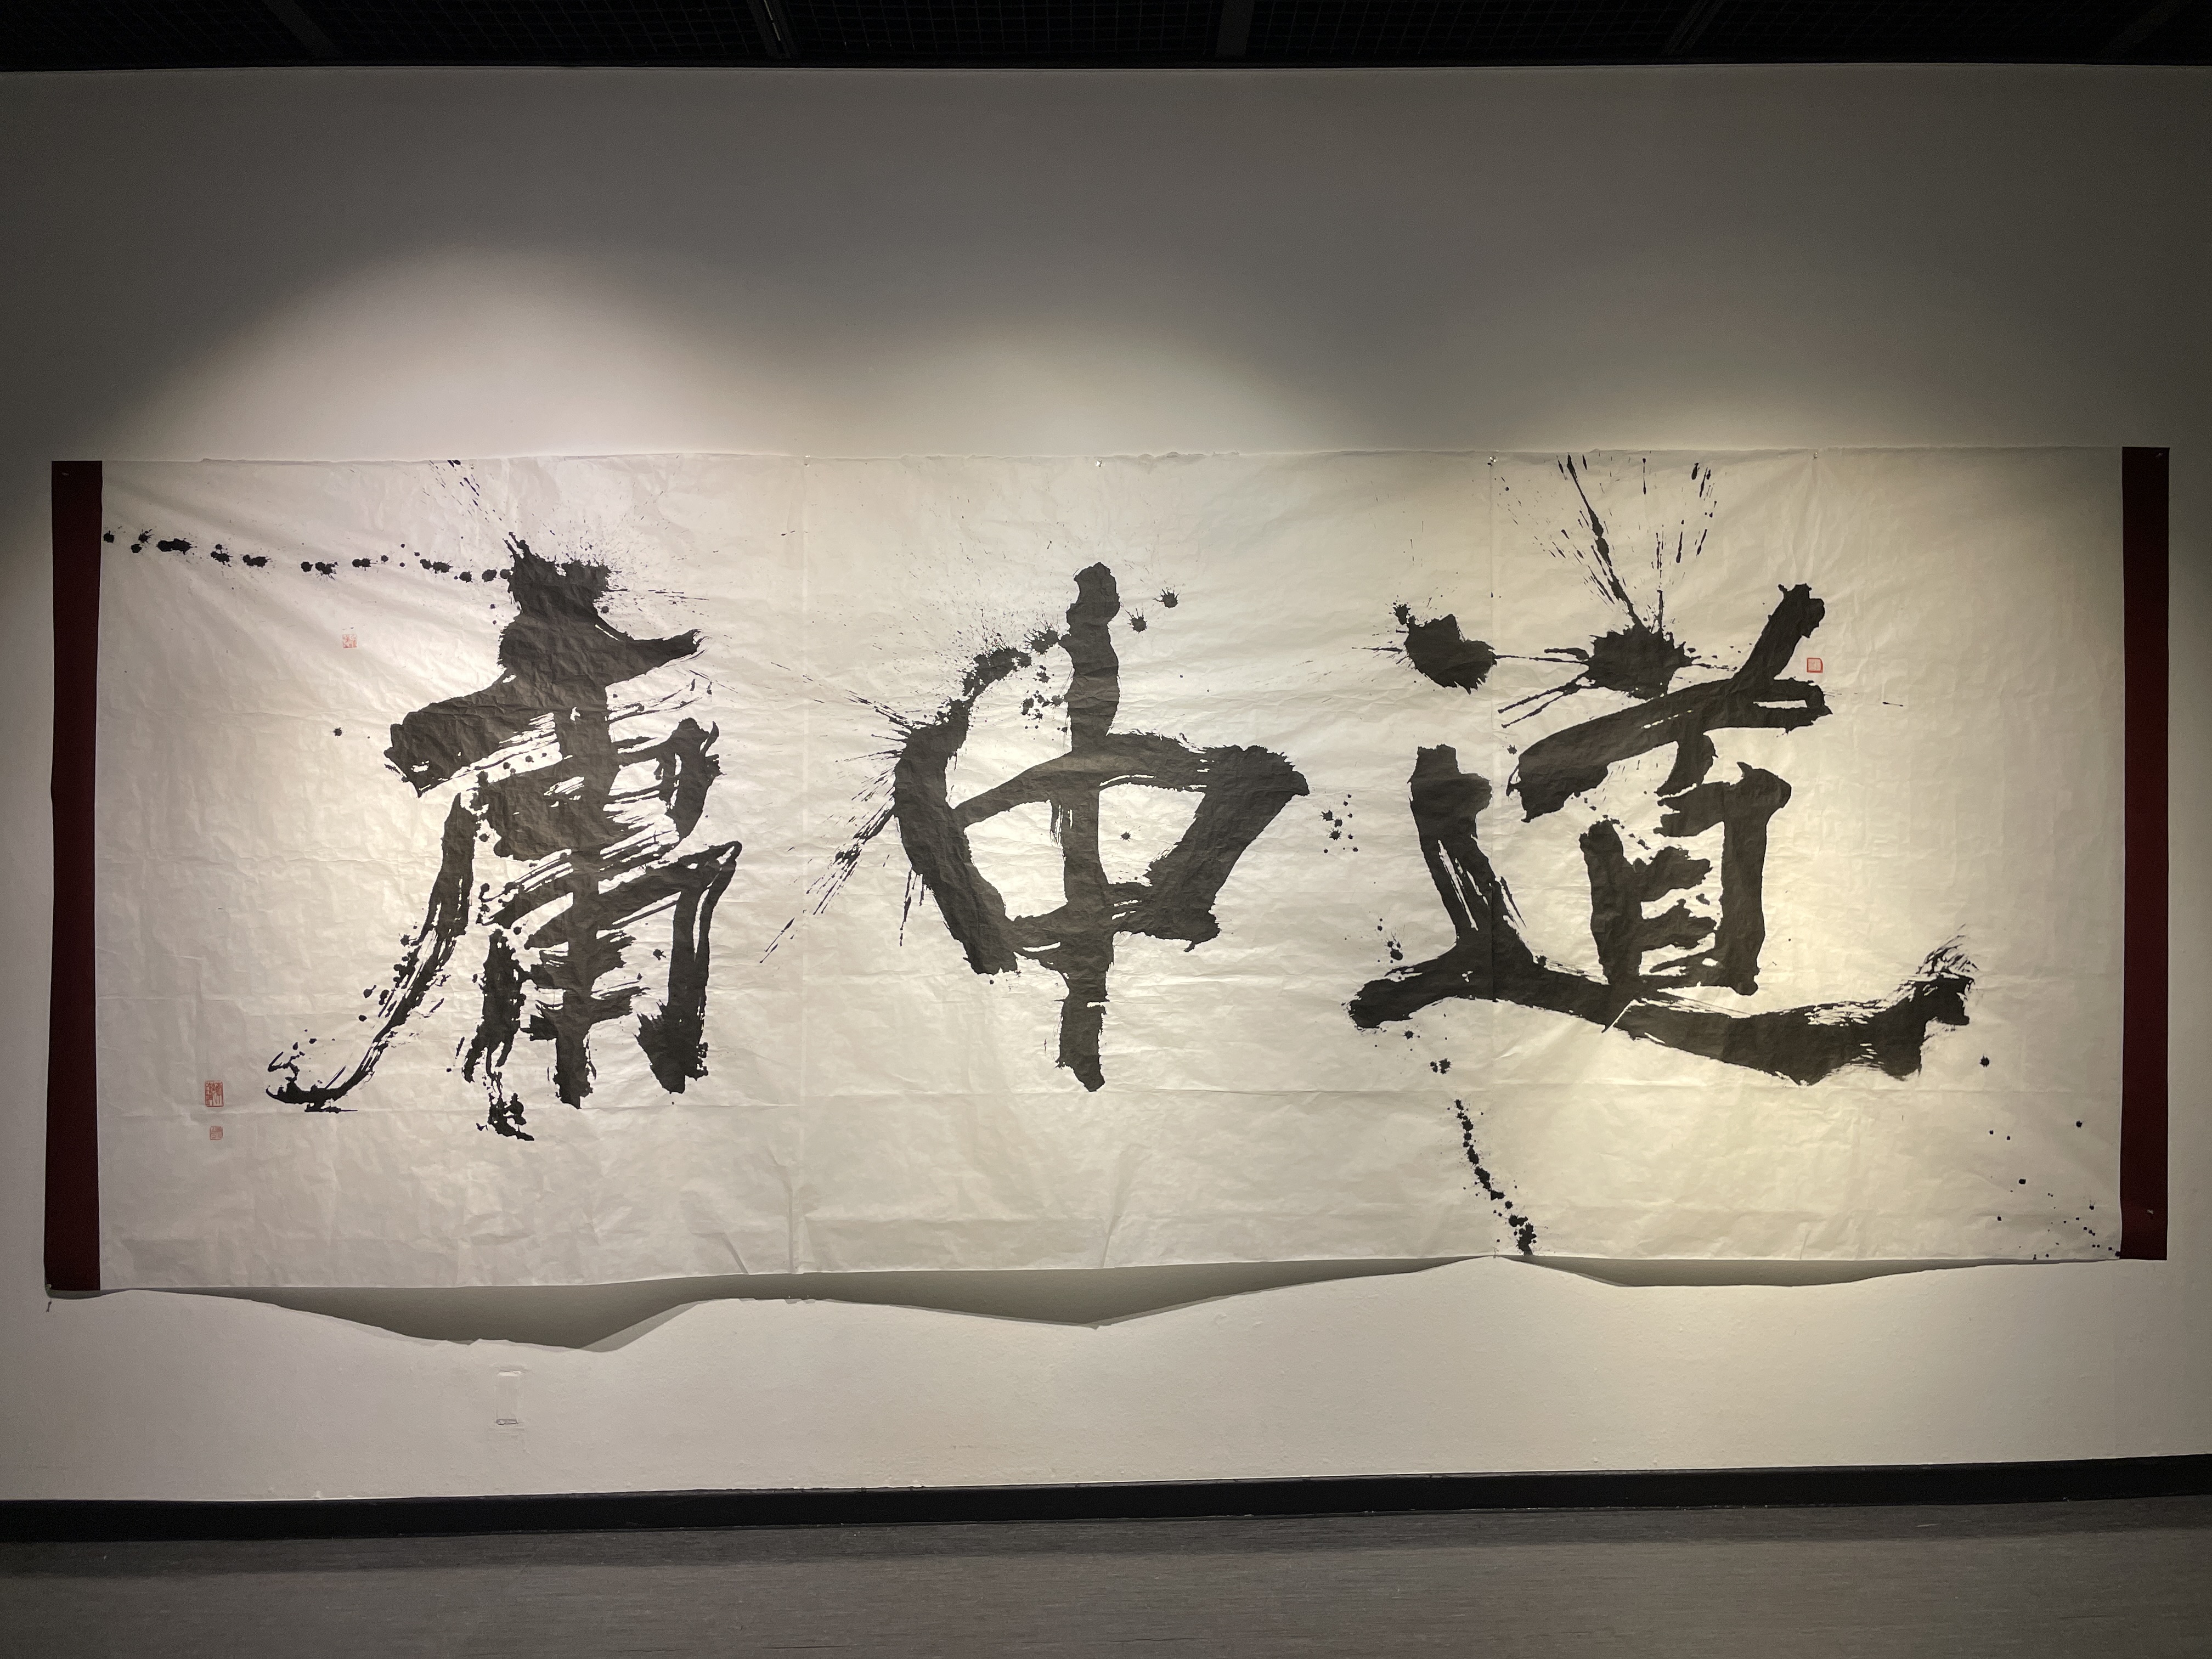 道中庸